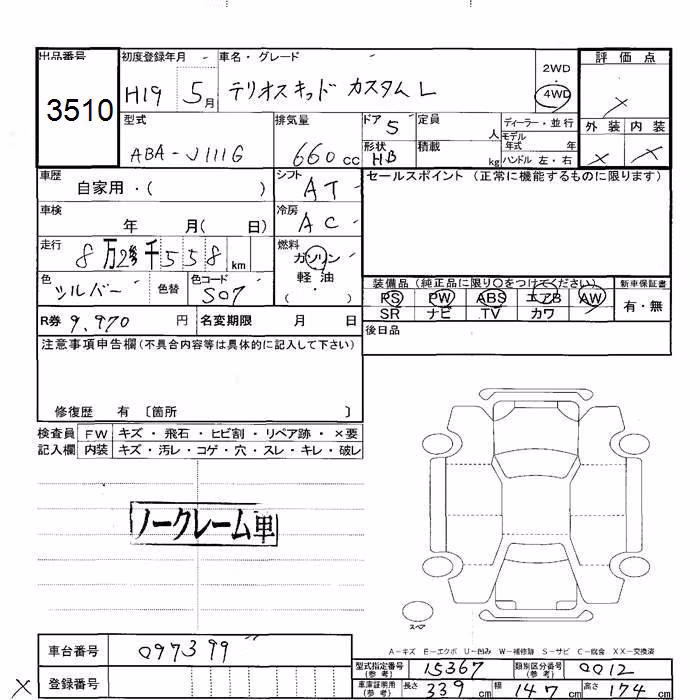 出品番号 初度登録年月 車名・グレード 2WD 評価点
3510 H19 5月 テリオスキッド カスタムL 4WD ×
型式 排気量 ドア 5 定員 人 ディーラー・並行 外装 内装
ABA-J111G 660cc 形状 HB 積載 kg モデル年式 年 × ×
ハンドル 左・右
車歴 自家用・( ) シフト AT セールスポイント (正常に機能するものに限ります)
車検 年 月( 日) 冷房 AC
走行 8万 千558km 燃料 ガソリン
軽・油
( ・ )
色 シルバー 色替 色コード S07 装備品 (純正品に限り○をつけてください) 新車保証書
PS PW ABS エアB AW 有・無
SR ナビ TV カワ
R券 9,970 円 名変期限 月 日 後日品
注意事項申告欄(不具合内容等は具体的に記入して下さい)
修復歴 有 〔箇所 〕
検査員 FW キズ・飛石・ヒビ割・リペア跡・×要
記入欄 内装 キズ・汚レ・コゲ・穴・スレ・キレ・破レ
ノークレーム車
スペア
A-キズ E-エクボ U-凹み W-補修跡 S-サビ C-腐食 XX-交換済
車台番号 097399 型式指定番号(参考) 15367 類別区分番号(参考) 0012
× 登録番号 車庫証明用(参考) 長さ 339cm 幅 147cm 高さ 174cm